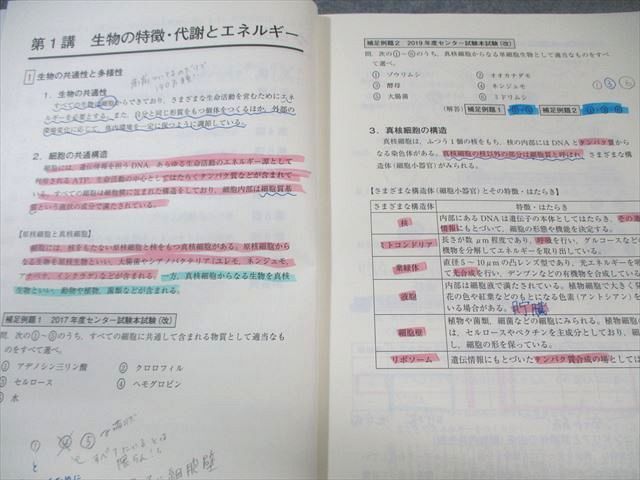 第1講 生物の特徴・代謝とエネルギー
1 生物の共通性と多様性
1. 生物の共通性
すべての生物は細胞からできており、さまざまな生命活動を営むためにエネ
ルギーを必要とする。また、自分と同じ形質をもつ個体をつくるほか、外部の
環境変化に応じて、体内環境を一定に保つように調節している。
2. 細胞の共通構造
細胞には、遺伝情報を担うDNA、あらゆる生命活動のエネルギー源として
利用されるATP、生命活動の中心としてはたらくタンパク質などが含まれて
いる。すべての細胞は細胞膜に包まれた構造をしており、細胞内部は細胞質基
質という液状の成分で満たされている。
【原核細胞と真核細胞】
細胞には、核をもたない原核細胞と核をもつ真核細胞がある。原核細胞から
なる生物を原核生物といい、大腸菌やシアノバクテリア（ユレモ、ネンジュモ、
アナベナ、イシクラゲ）などが含まれる。一方、真核細胞からなる生物を真核
生物といい、動物や植物、菌類などが含まれる。
補足例題1 2017年度センター試験本試験（改）
問. 次の①~⑤のうち、すべての細胞に共通して含まれる物質として適当なも
のをすべて選べ。
① アデノシン三リン酸 ② クロロフィル
③ セルロース ④ ヘモグロビン
⑤ 水
補足例題2 2019年度センター試験本試験（改）
問. 次の①~⑥のうち、真核細胞からなる単細胞生物として適当なものをすべ
て選べ。
① ゾウリムシ ② オオカナダモ
③ 酵母 ④ ネンジュモ
⑤ 大腸菌 ⑥ ミドリムシ
（解答） 補足例題1 ①・⑤ 補足例題2 ①・③・⑥
3. 真核細胞の構造
真核細胞は、ふつう1個の核をもち、核の内部にはDNAとタンパク質から
なる染色体がある。真核細胞の核以外の部分は細胞質と呼ばれ、さまざまな構
造体（細胞小器官）がみられる。
【さまざまな構造体（細胞小器官）とその特徴・はたらき】
さまざまな構造体 特徴・はたらき
核 内部にあるDNAは遺伝子の本体としてはたらき、その遺
情報にもとづいて、細胞の形態や機能を決定する。
ミトコンドリア 長さが数μm程度であり、呼吸を行い、グルコースなどの
機物を分解してエネルギーを取り出している。
葉緑体 直径5~10μmの凸レンズ型であり、光エネルギーを吸
て光合成を行い、デンプンなどの有機物を合成している
液胞 内部は細胞液で満たされている。植物細胞で大きく発
花の色や紅葉などのもとになる色素（アントシアン）
いる場合がある。 貯蔵
細胞壁 植物や菌類、細菌などの細胞にみられる。植物細胞の
は、セルロースやペクチンを主成分としており、細
し、細胞の形を保っている。
リボソーム 遺伝情報にもとづいたタンパク質合成の場としては